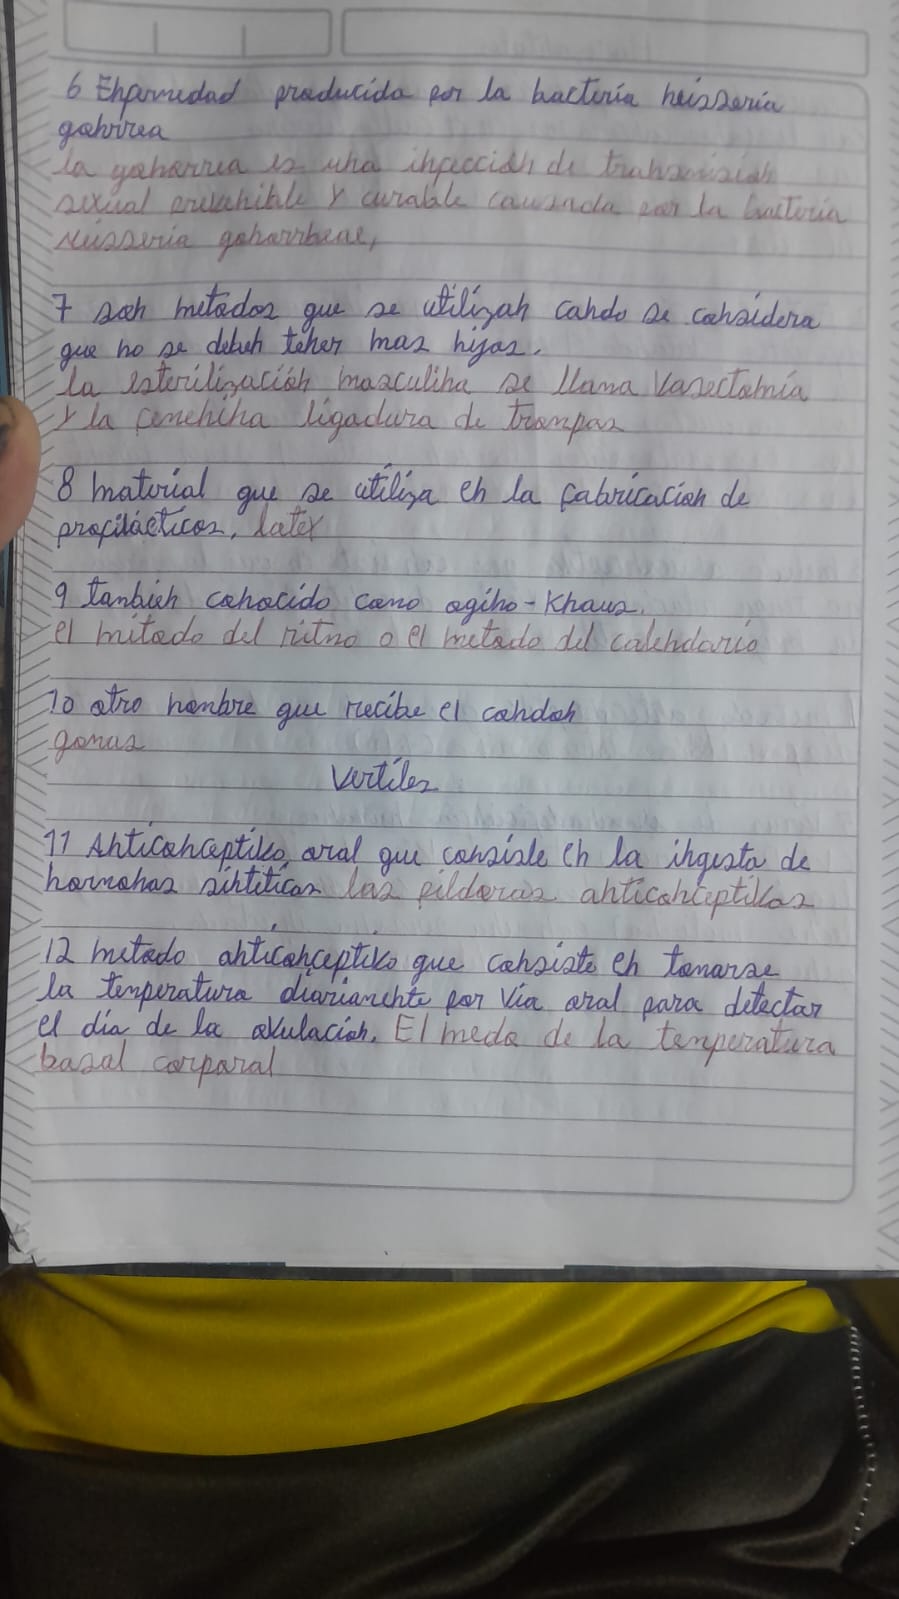 6 Enfermedad producida por la bacteria neisseria
gonorrea
la gonorrea es una infección de transmisión
sexual prevenible y curable causada por la bacteria
Neisseria gonorrheae,
7 son metodos que se utilizan cando se considera
que no se deben tener mas hijos.
la esterilización masculina se llama Vasectomía
y la femenina ligadura de trompas
8 material que se utiliza en la fabricacion de
profilácticos, latex
9 tanbien conocido como ogino-Khaus.
el metodo del ritmo o el metodo del calendario
10 otro nonbre que recibe el condon
gomas
Vertiles
11 Anticonceptivo oral que consiste en la ingesta de
hormonas sintéticas las pildoras anticonceptivas
12 metodo anticonceptivo que consiste en tomarse
la temperatura diariamente por Vía oral para detectar
el día de la ovulación. El medo de la temperatura
basal corporal